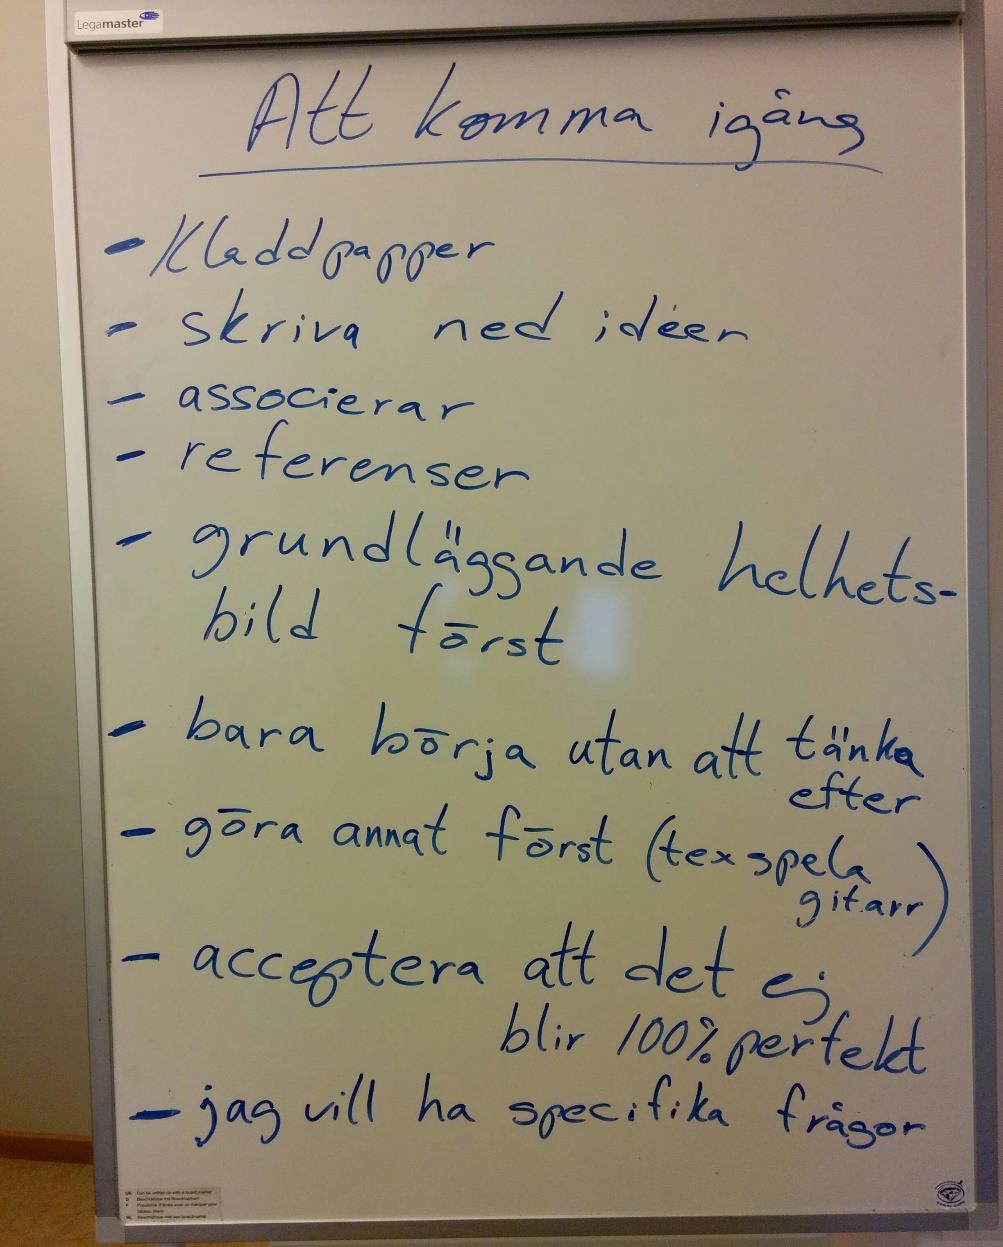 Legamaster
Att komma igång
- Kladdpapper
- skriva ned idéer
- associerar
- referenser
- grundläggande helhets-
bild först
- bara börja utan att tänka
efter
- göra annat först (tex spela
gitarr)
- acceptera att det ej
blir 100% perfekt
- jag vill ha specifika frågor